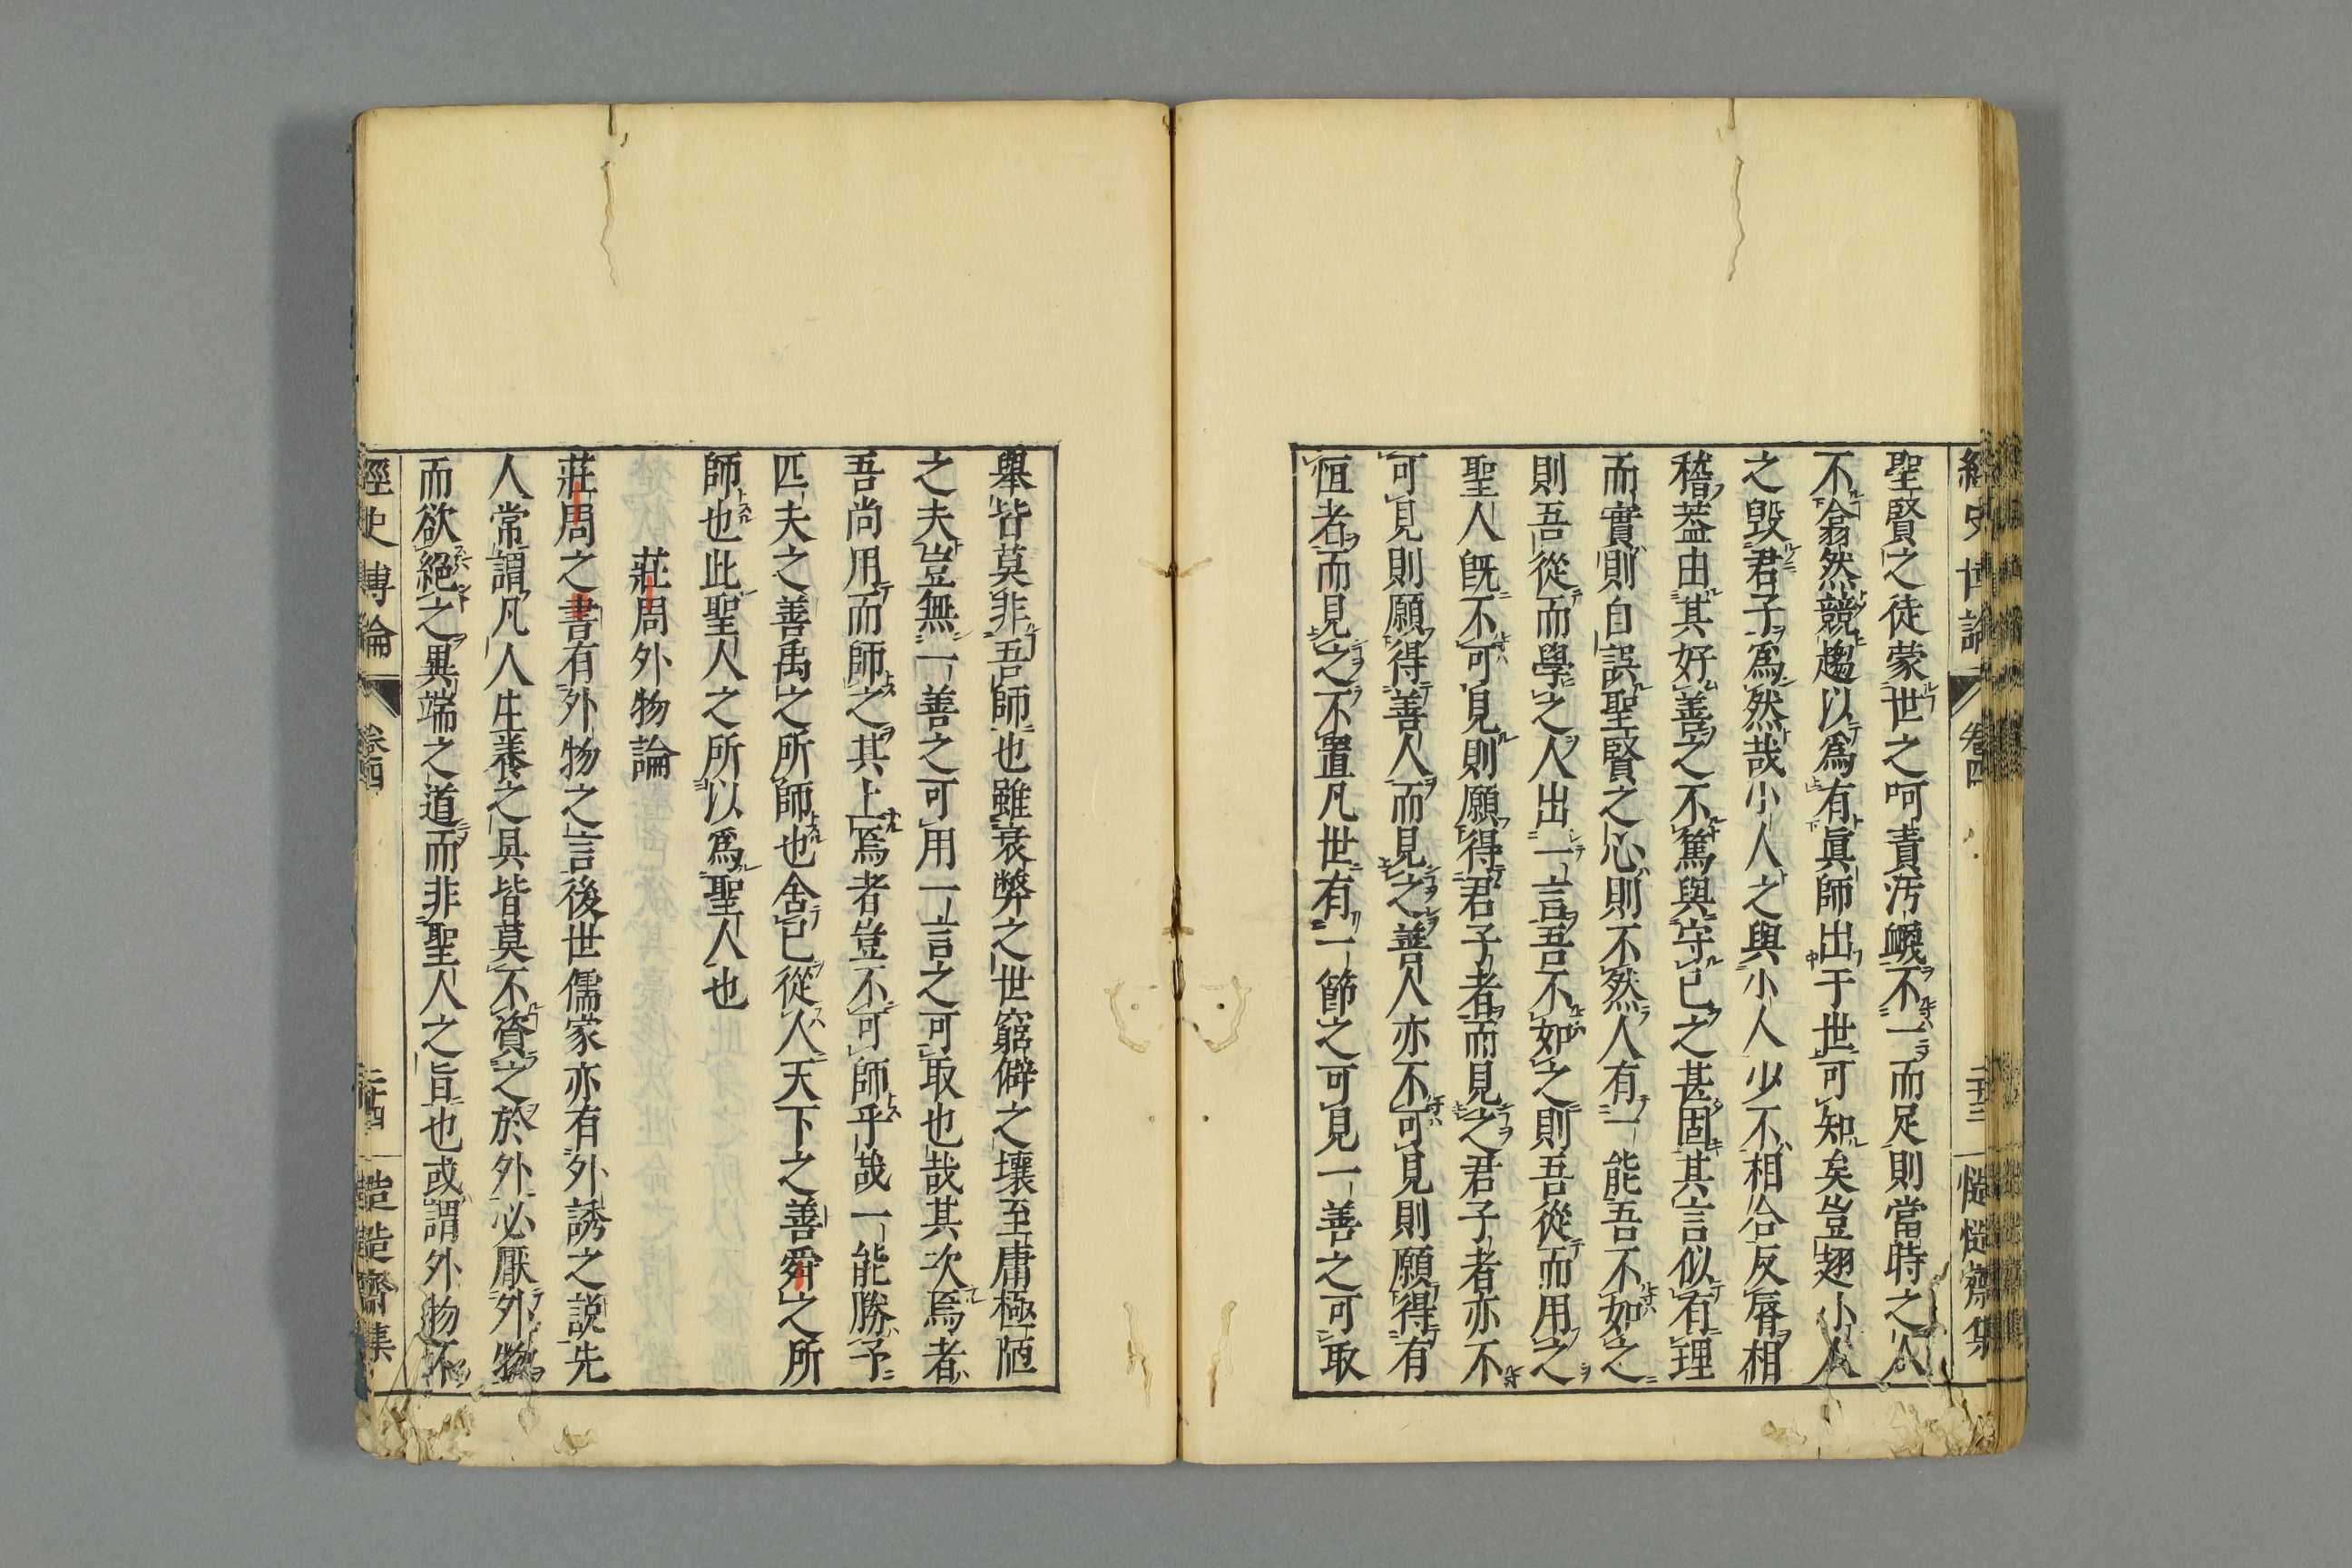 聖賢之徒蒙世之呵責汚衊不一而足則當時之人
不翕然競趨以爲有眞師出于世可知矣豈翅小人
之毀君子爲然哉小人之與小人少不相合反脣相
稽蓋由其好善之不篤與守己之甚固其言似有理
而實則自誤聖賢之心則不然人有一能吾不如之
則吾從而學之人出一言吾不如之則吾從而用之
聖人既不可見則願得君子者而見之君子者亦不
可見則願得善人而見之善人亦不可見則願得有
恒者而見之不置凡世有一節之可見一善之可取
經史博論 卷四 慥慥齋集
舉皆莫非吾師也雖衰弊之世窮僻之壤至庸極陋
之夫豈無一善之可用一言之可取也哉其次焉者
吾尚用而師之其上焉者豈不可師乎哉一能勝予
匹夫之善禹之所師也舍己從人天下之善舜之所
師也此聖人之所以爲聖人也
莊周外物論
莊周之書有外物之言後世儒家亦有外誘之説先
人常謂凡人生養之具皆莫不資之於外必厭外物
而欲絕之異端之道而非聖人之旨也或謂外物不
經史博論 卷四 二十四 慥慥齋集